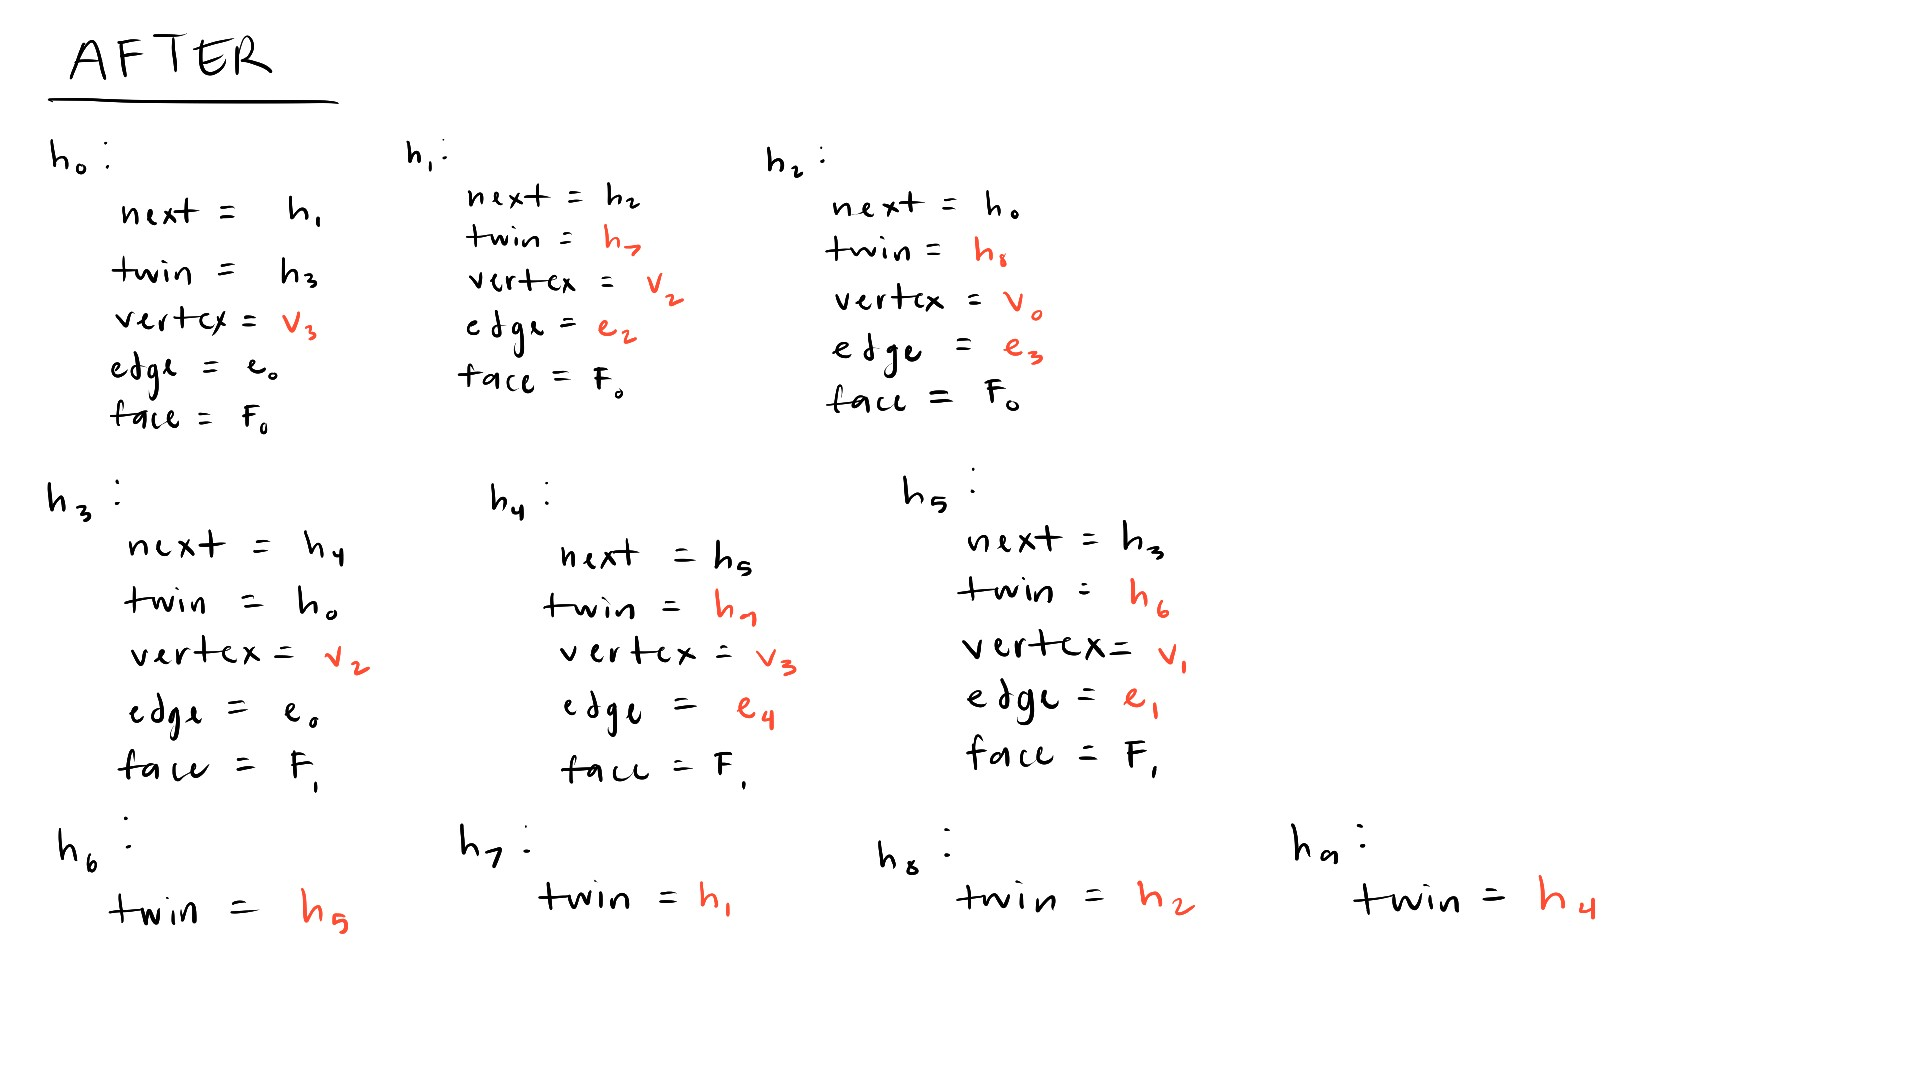 AFTER
h₀:
next = h₁
twin = h₃
vertex = v₃
edge = e₀
face = F₀
h₁:
next = h₂
twin = h₇
vertex = v₂
edge = e₂
face = F₀
h₂:
next = h₀
twin = h₈
vertex = v₀
edge = e₃
face = F₀
h₃:
next = h₄
twin = h₀
vertex = v₂
edge = e₀
face = F₁
h₄:
next = h₅
twin = h₉
vertex = v₃
edge = e₄
face = F₁
h₅:
next = h₃
twin = h₆
vertex = v₁
edge = e₁
face = F₁
h₆:
twin = h₅
h₇:
twin = h₁
h₈:
twin = h₂
h₉:
twin = h₄